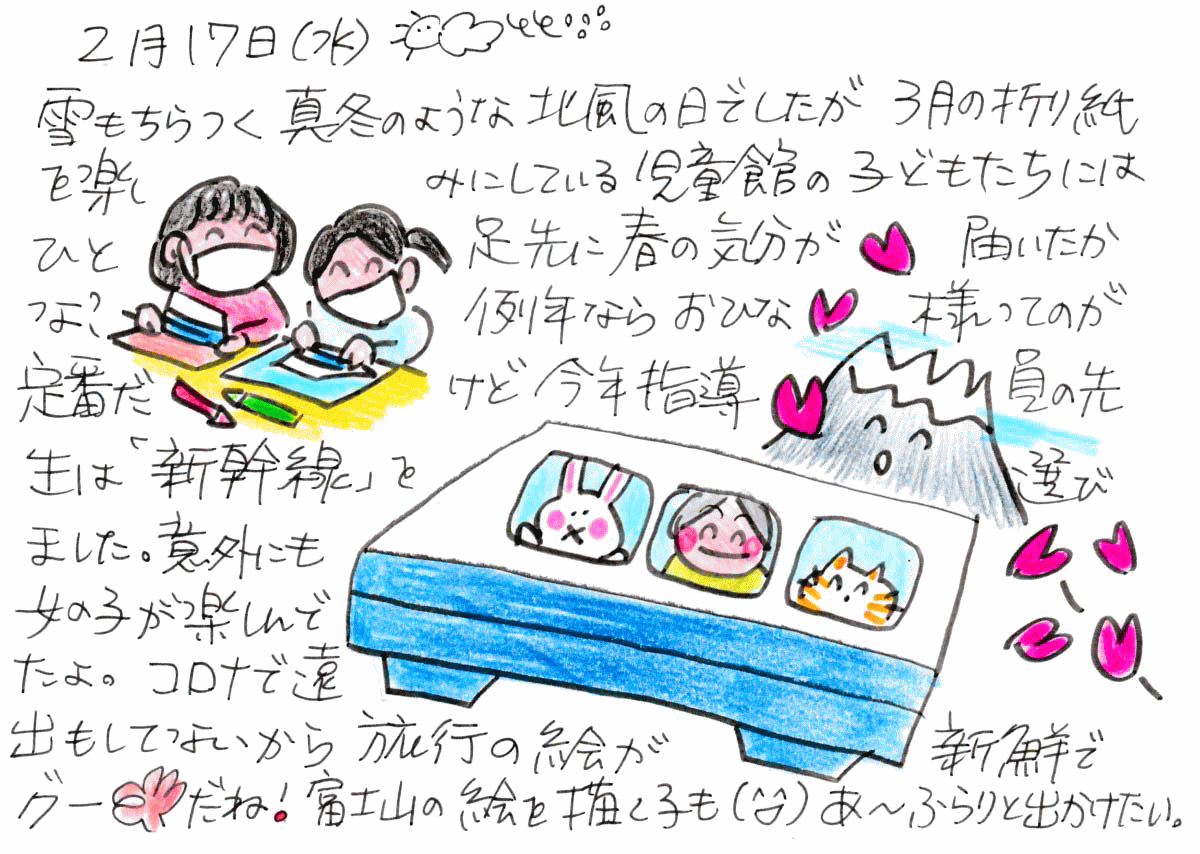 2月17日(水)
雪もちらつく真冬のような北風の日でしたが 3月の折り紙
を楽しみにしている児童館の子どもたちには
ひと足先に春の気分が届いたか
な?例年ならおひな様ってのが
定番だけど今年指導員の先
生は「新幹線」を選び
ました。意外にも
女の子が楽しんで
たよ。コロナで遠
出もしてないから旅行の絵が新鮮で
グーだね!富士山の絵を描く子も(^^)あ〜ふらりと出かけたい。